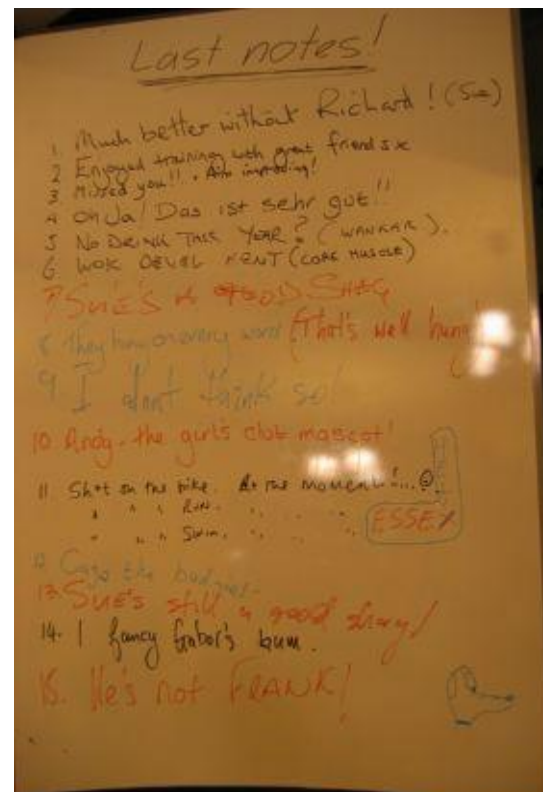 Last notes!
1 Much better without Richard! (Sue)
2 Enjoyed training with great friends xx
3 Missed you!! improving!
4 Oh Ja! Das ist sehr gut!!
5 NO DRINK THIS YEAR? (WANKAR).
6 WOK DEVEL KENT (CORE MUSCLE)
7 SUE'S A GOOD SHAG
8 They hang on every word (That's well hung
9 I dont think so!
10. Andy - the girls club mascot!
11 Sh*t on the bike. At the moment!...
" " " RUN. " " "
" " " Swim. " " "
ESSEX
12 Cage the badger.
13. SUE'S still a good shag!
14. I fancy Gabor's bum.
15. He's not FRANK!